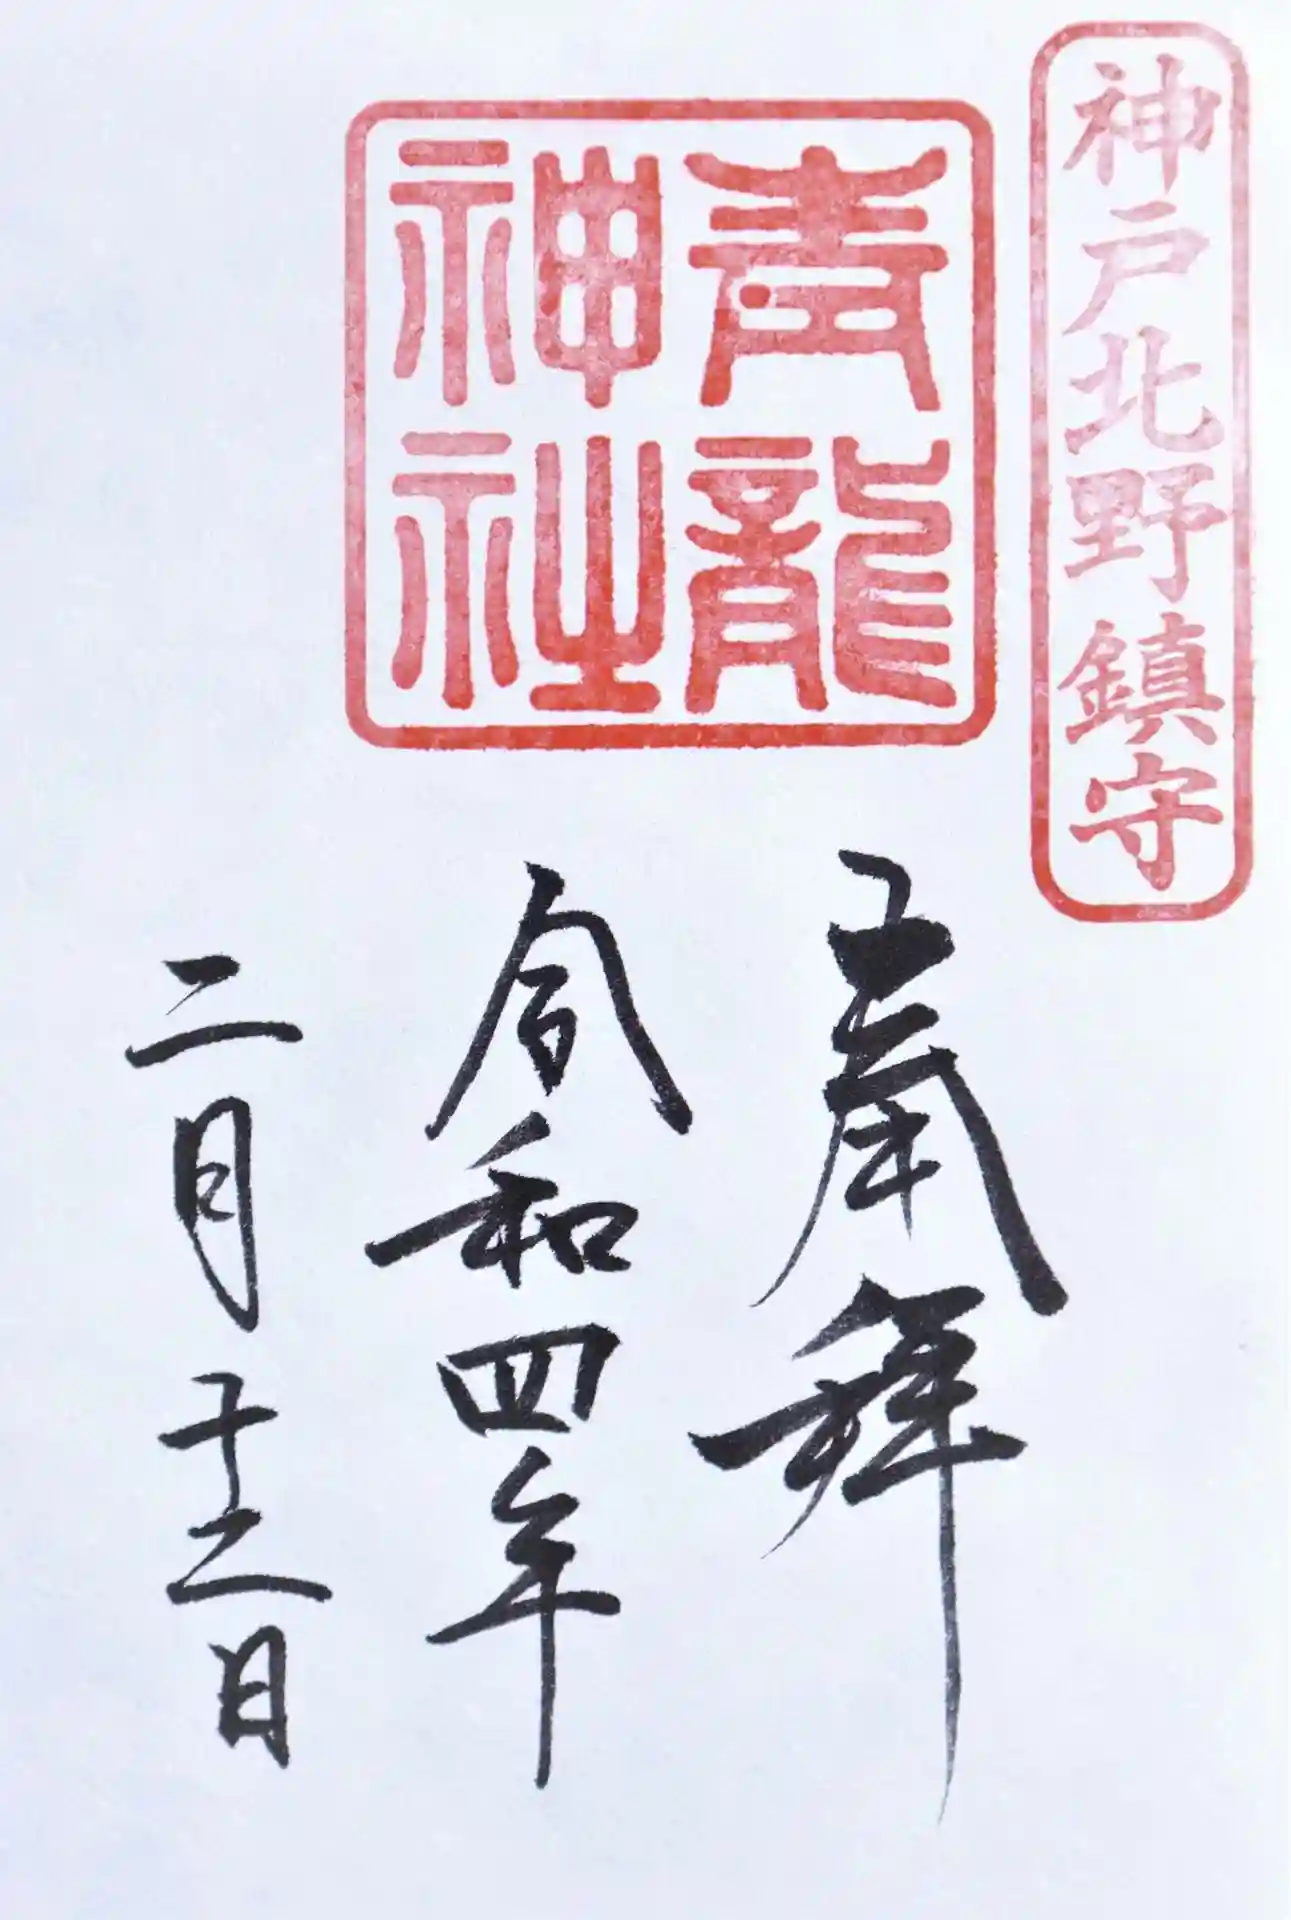 神戸北野鎮守
青龍
神社
奉拝
令和四年
二月十二日